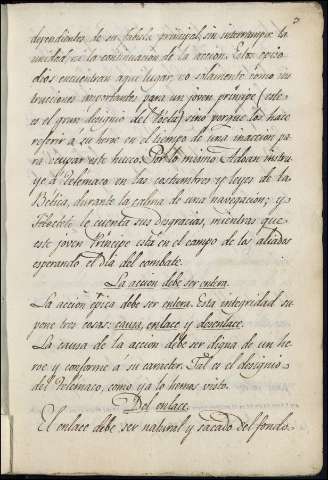 dependientes de su fabula principal, sin interrumpir la
unidad, ni la continuacion de la accion. Estos episo
dios encuentran aqui lugar, no solamente como ins
trucciones importantes para un joven principe (este
es el gran designio del Poeta) sino porque los hace
referir á su heroe en el tiempo de una inaccion pa
ra ocupar este hueco. Por lo mismo Adoan instru
ye á Telemaco en las costumbres y leyes de la
Betica, durante la calma de una navegacion; y
Filoctete le cuenta sus desgracias, mientras que
este joven Principe está en el campo de los aliados
esperando el dia del combate.
La accion debe ser entera.
La accion épica debe ser entera. Esta integridad su
pone tres cosas: causa, enlace y desenlace.
La causa de la accion debe ser digna de un he
roe y conforme á su caracter. Tal es el designio
del Telemaco, como ya lo hemos visto.
Del enlace.
El enlace debe ser natural y sacado del fondo